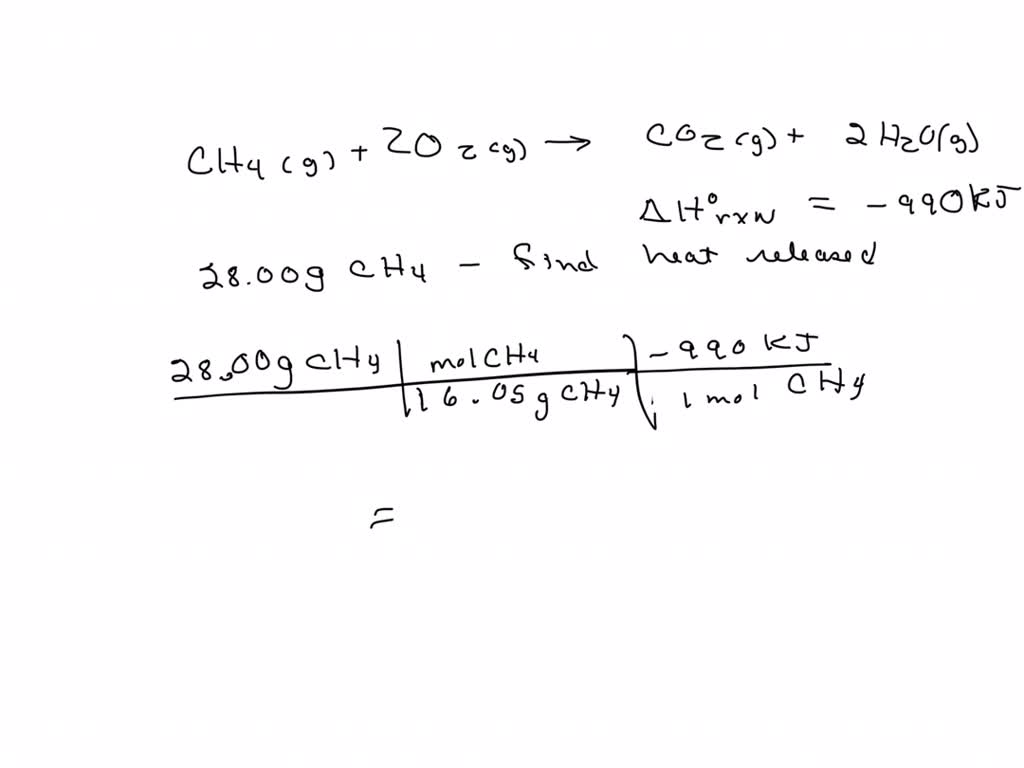 CH4 (g) + 2O2 (g) → CO2 (g) + 2H2O(g)
ΔH°rxn = -990KJ
28.00g CH4 - find heat released
28.00g CH4 | mol CH4 | -990 KJ
16.05g CH4 | 1 mol CH4
=